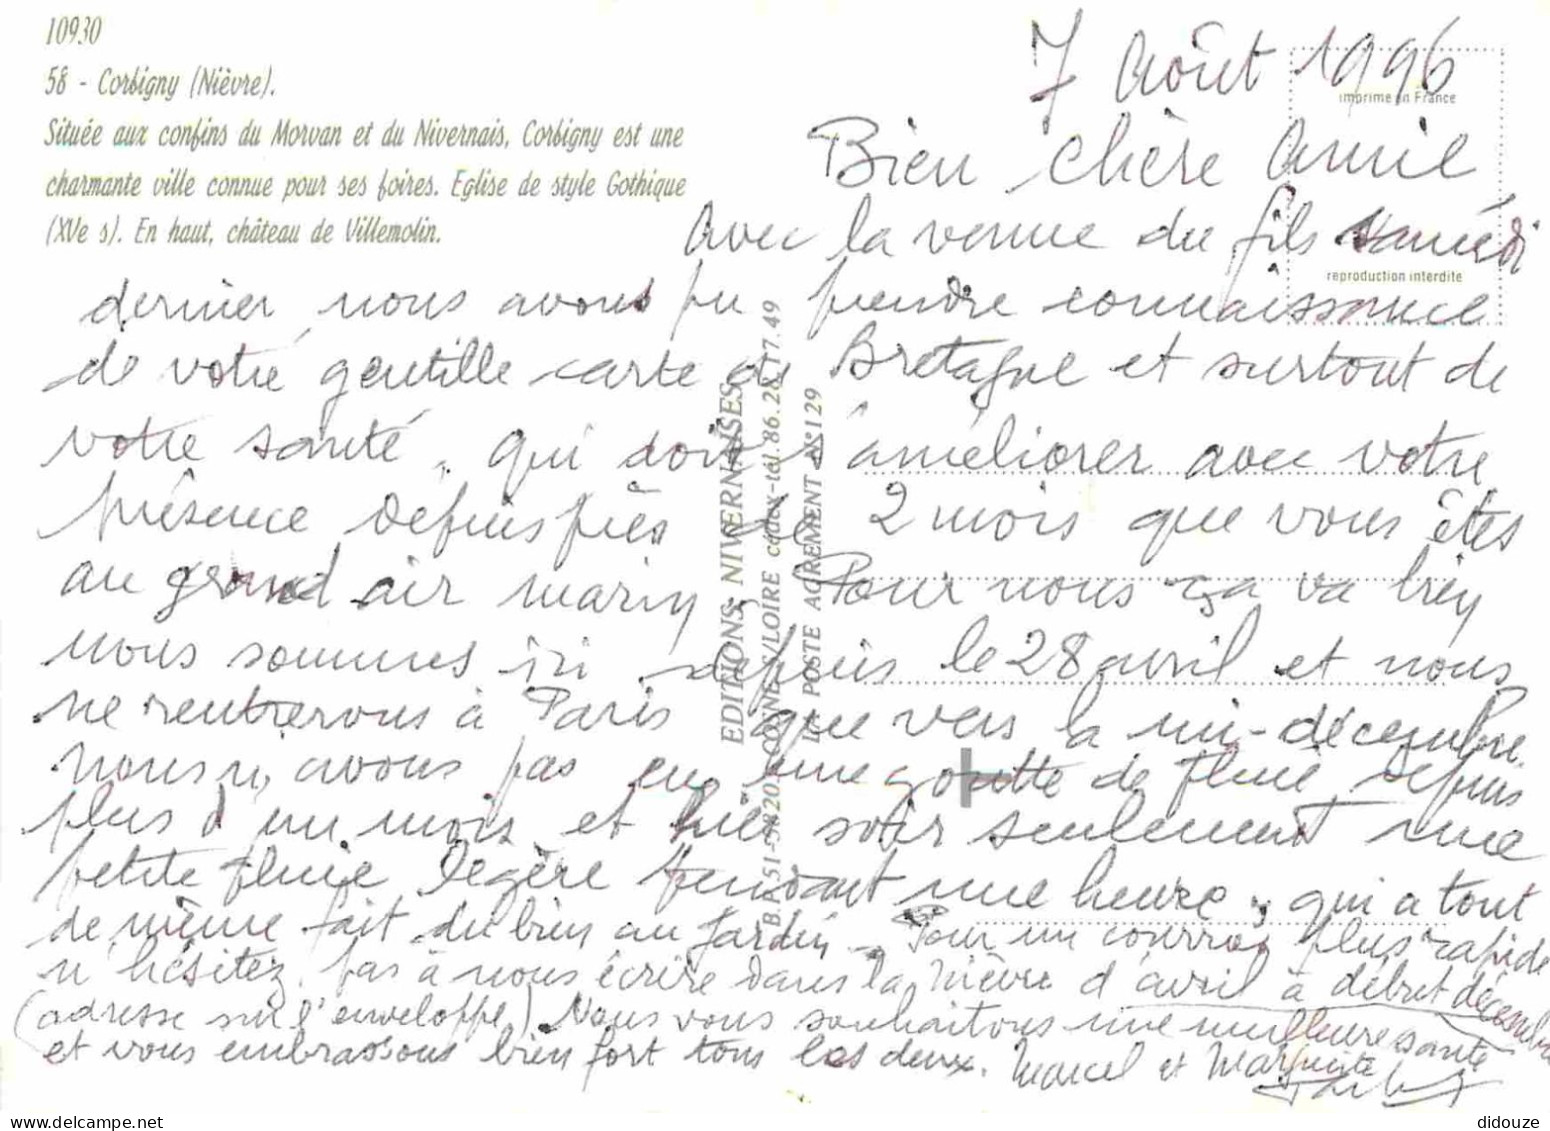 10930
58 - Corbigny (Nièvre).
Située aux confins du Morvan et du Nivernais, Corbigny est une
charmante ville connue pour ses foires. Eglise de style Gothique
(XVe s). En haut, château de Villemolin.
imprimé en France
reproduction interdite
EDITIONS NIVERNAISES
LA POSTE AGREMENT N°129
7 Août 1996
Bien chère Amie
Avec la venue du fils samedi
dernier nous avons pu prendre connaissance
de votre gentille carte de Bretagne et surtout de
votre santé, qui doit s'améliorer avec votre
présence depuis près de 2 mois que vous êtes
au grand air marin. Pour nous ça va bien
nous sommes ici depuis le 28 avril et nous
ne rentrerons à Paris que vers la mi-décembre.
Nous n'avons pas eu une goutte de pluie depuis
plus d'un mois et hier soir seulement une
petite pluie légère pendant une heure, qui a tout
de même fait du bien au jardin. Pour un courrier plus rapide
n'hésitez pas à nous écrire dans la Nièvre d'avril à début décembre
(adresse sur l'enveloppe). Nous vous souhaitons une meilleure santé
et vous embrassons bien fort tous les deux. Marcel et Marguerite
didouze